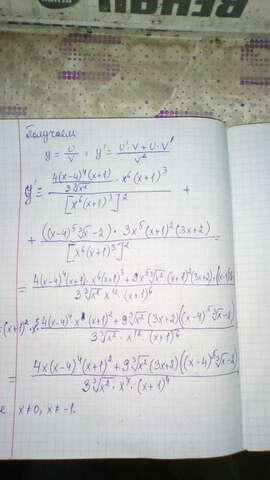 ВЕНАЛ
Получаем
y = U/V ; y' = (U'·V + U·V')/V²
y' = (4(x-4)⁴(x+1)/(3∛x²) · x⁶(x+1)³)/[x⁶(x+1)³]² +
+ ((x-4)⁵∛x - 2) · 3x⁵(x+1)²(3x+2)/[x⁶(x+1)³]² =
= (4(x-4)⁴(x+1)·x⁶(x+1)³ + 9x⁵∛x²(x+1)²(3x+2)·((x-4)⁵
3∛x² x¹²·(x+1)⁶
= (x+1)²·x⁵ (4(x-4)⁴ x (x+1)² + 9∛x²(3x+2)((x-4)⁵∛x-2))/(3∛x²·x¹²·(x+1)⁶)
= (4x(x-4)⁴(x+1)² + 9∛x²(3x+2)((x-4)⁵∛x-2))/(3∛x²·x⁷·(x+1)⁴)
x≠0, x≠-1.